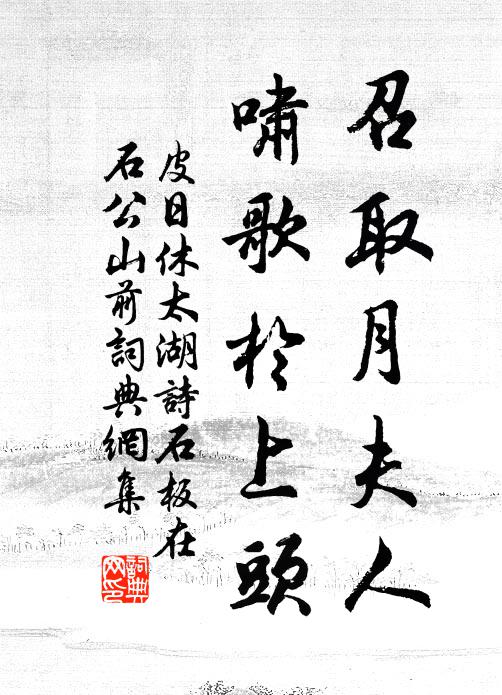 召取月夫人
嘯歌於上頭
皮日休太湖詩石板在
石公山前詞典網集
詞典
网印